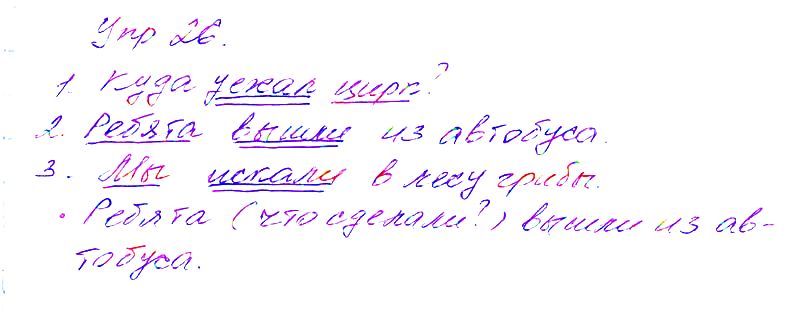 Упр 26.
1. Куда уехал цирк?
2. Ребята вышли из автобуса.
3. Мы искали в лесу грибы.
• Ребята (что сделали?) вышли из ав-
тобуса.